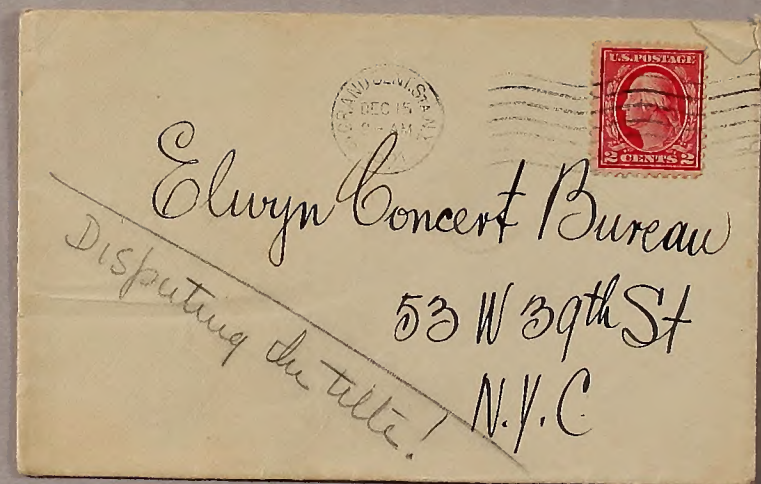 GRAND CENT. STA. N.Y.
DEC 15
AM
U.S. POSTAGE
2 CENTS 2
Elwyn Concert Bureau
53 W 39th St
N.Y.C
Disputing the title!